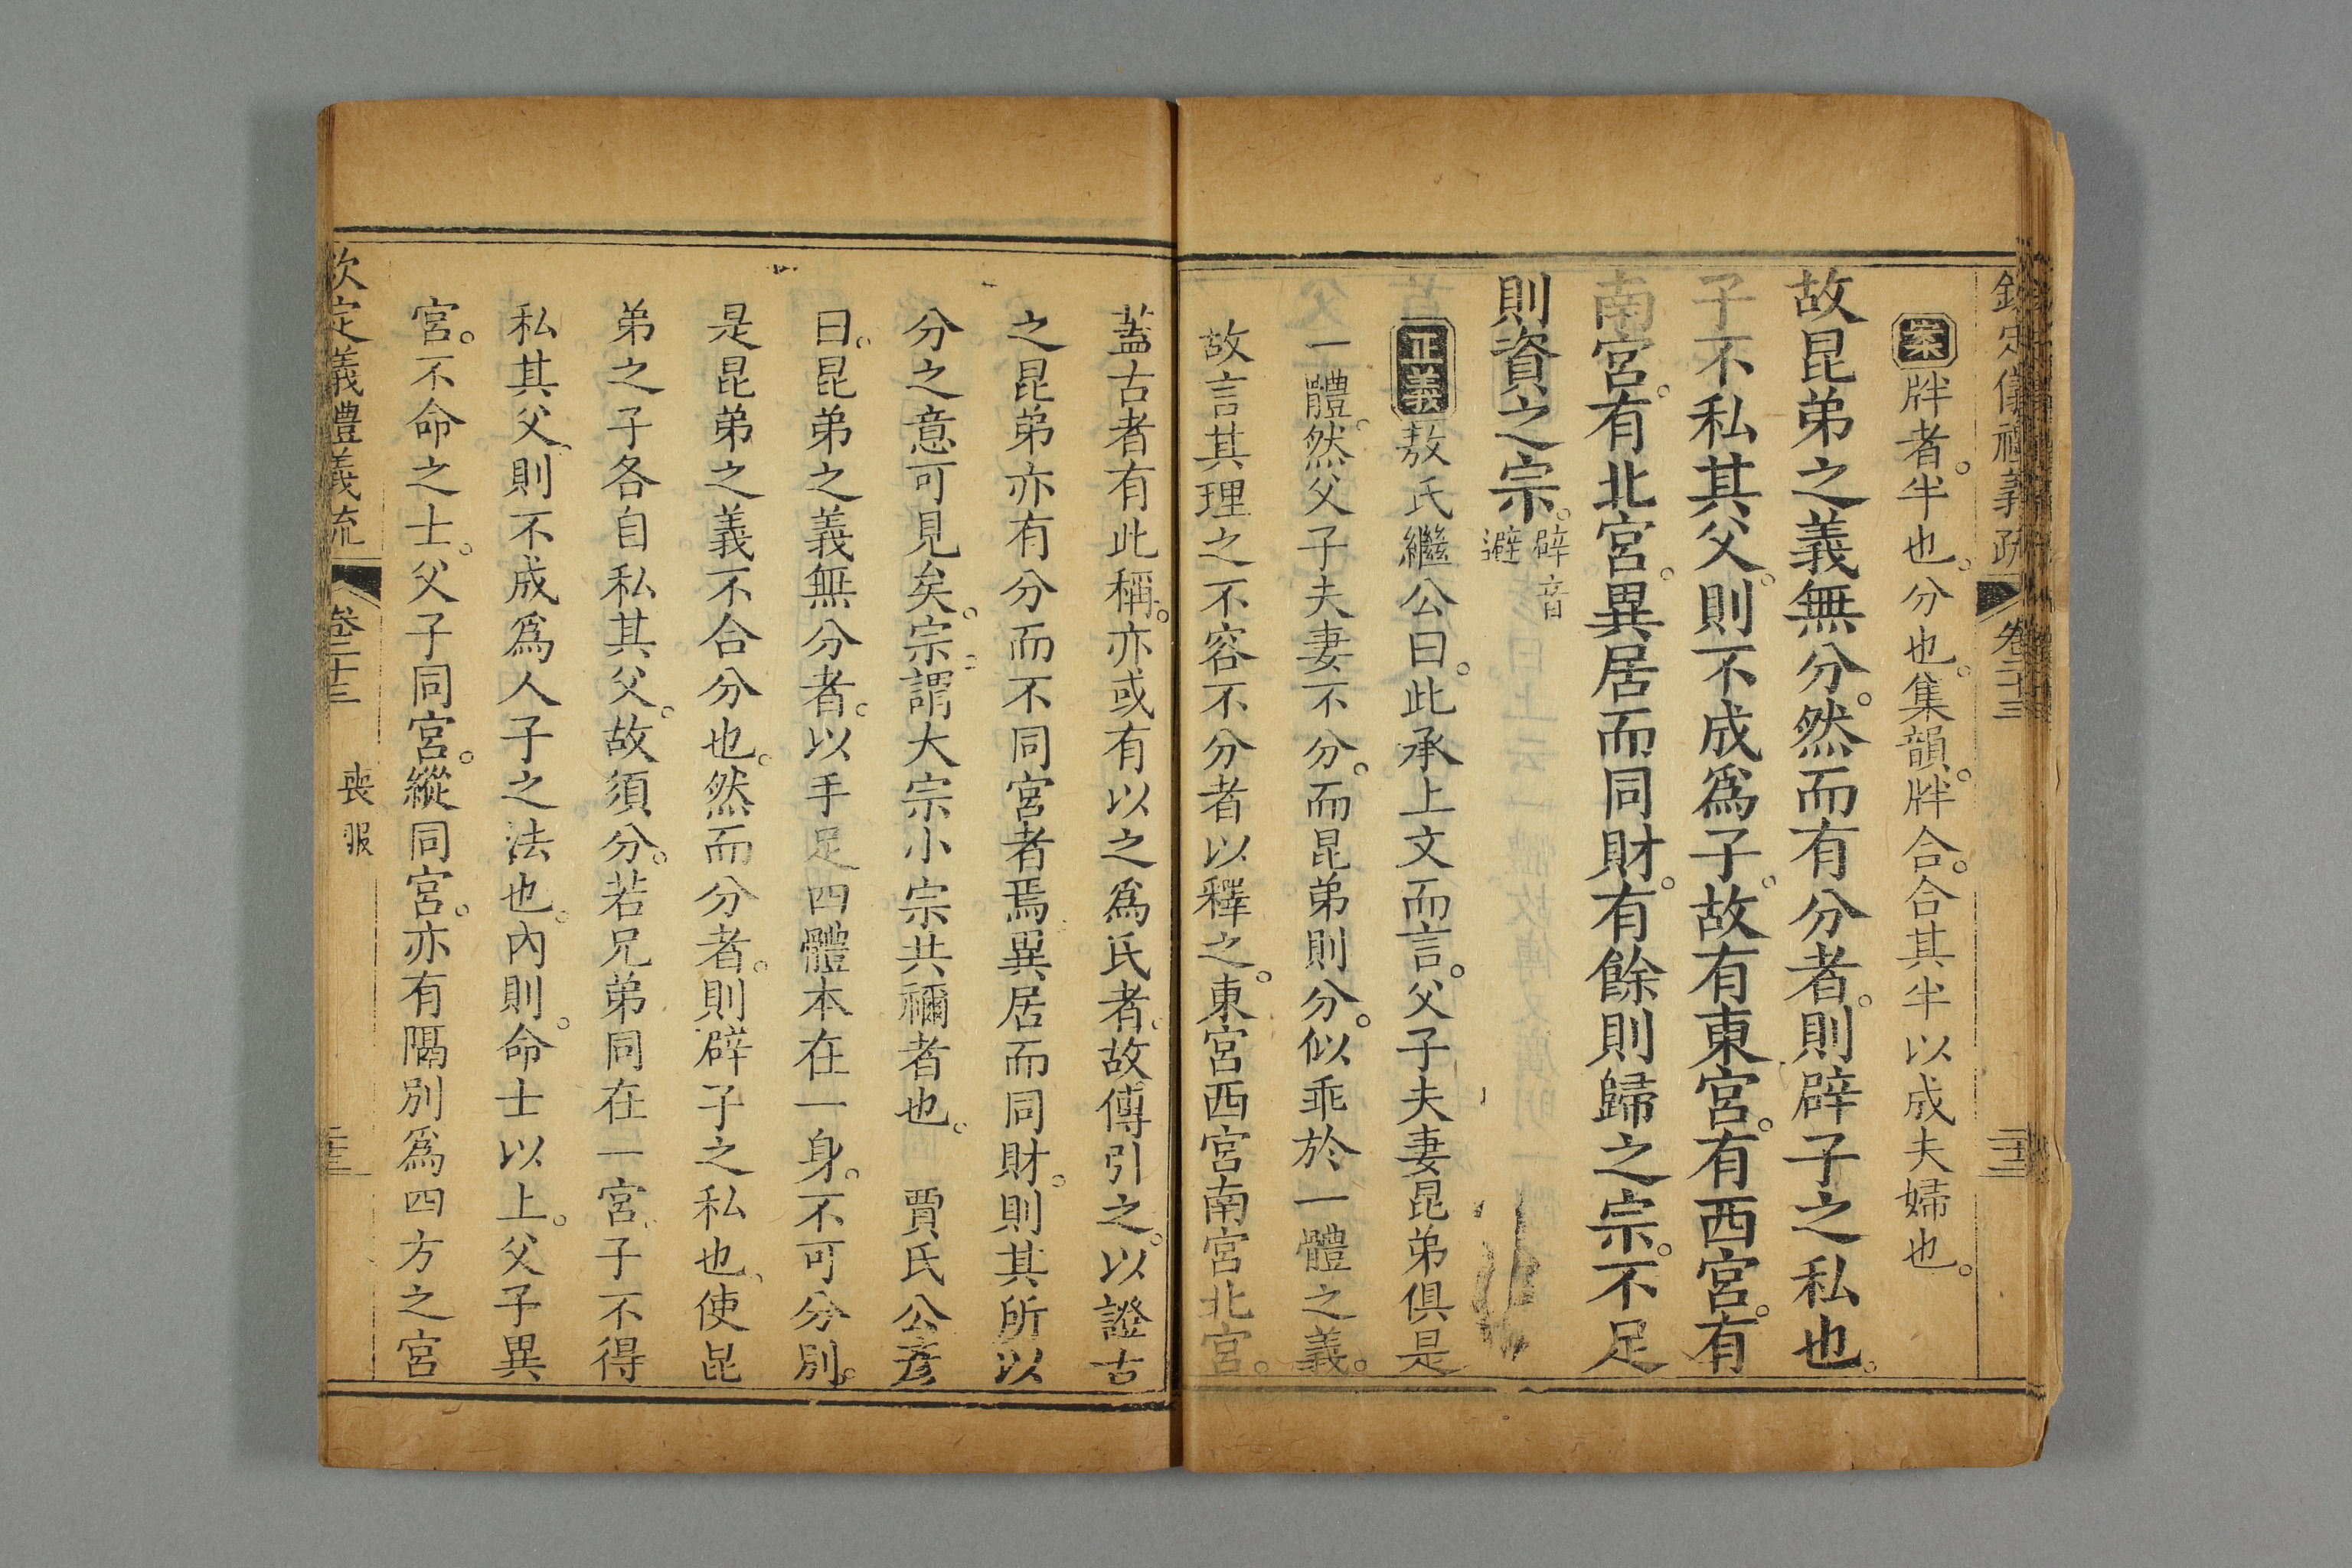 欽定儀禮義疏 卷二十三 二十三
案牉者。半也。分也。集韻。牉合。合其半以成夫婦也。
故昆弟之義無分。然而有分者。則辟子之私也。
子不私其父。則不成爲子。故有東宮。有西宮。有
南宮。有北宮。異居而同財。有餘則歸之宗。不足
則資之宗。辟音避
正義敖氏繼公曰。此承上文而言。父子夫妻昆弟俱是
一體。然父子夫妻不分。而昆弟則分。似乖於一體之義。
故言其理之不容不分者以釋之。東宮西宮南宮北宮。
蓋古者有此稱。亦或有以之爲氏者。故傳引之。以證古
之昆弟亦有分而不同宮者焉。異居而同財。則其所以
分之意可見矣。宗謂大宗小宗共禰者也。 賈氏公彥
曰。昆弟之義無分者。以手足四體本在一身。不可分別。
是昆弟之義不合分也。然而分者。則辟子之私也、使昆
弟之子各自私其父。故須分。若兄弟同在一宮、子不得
私其父、則不成爲人子之法也。內則。命士以上。父子異
宮。不命之士。父子同宮。縱同宮。亦有隔別爲四方之宮
欽定義禮義疏 卷二十三 喪服 二十三